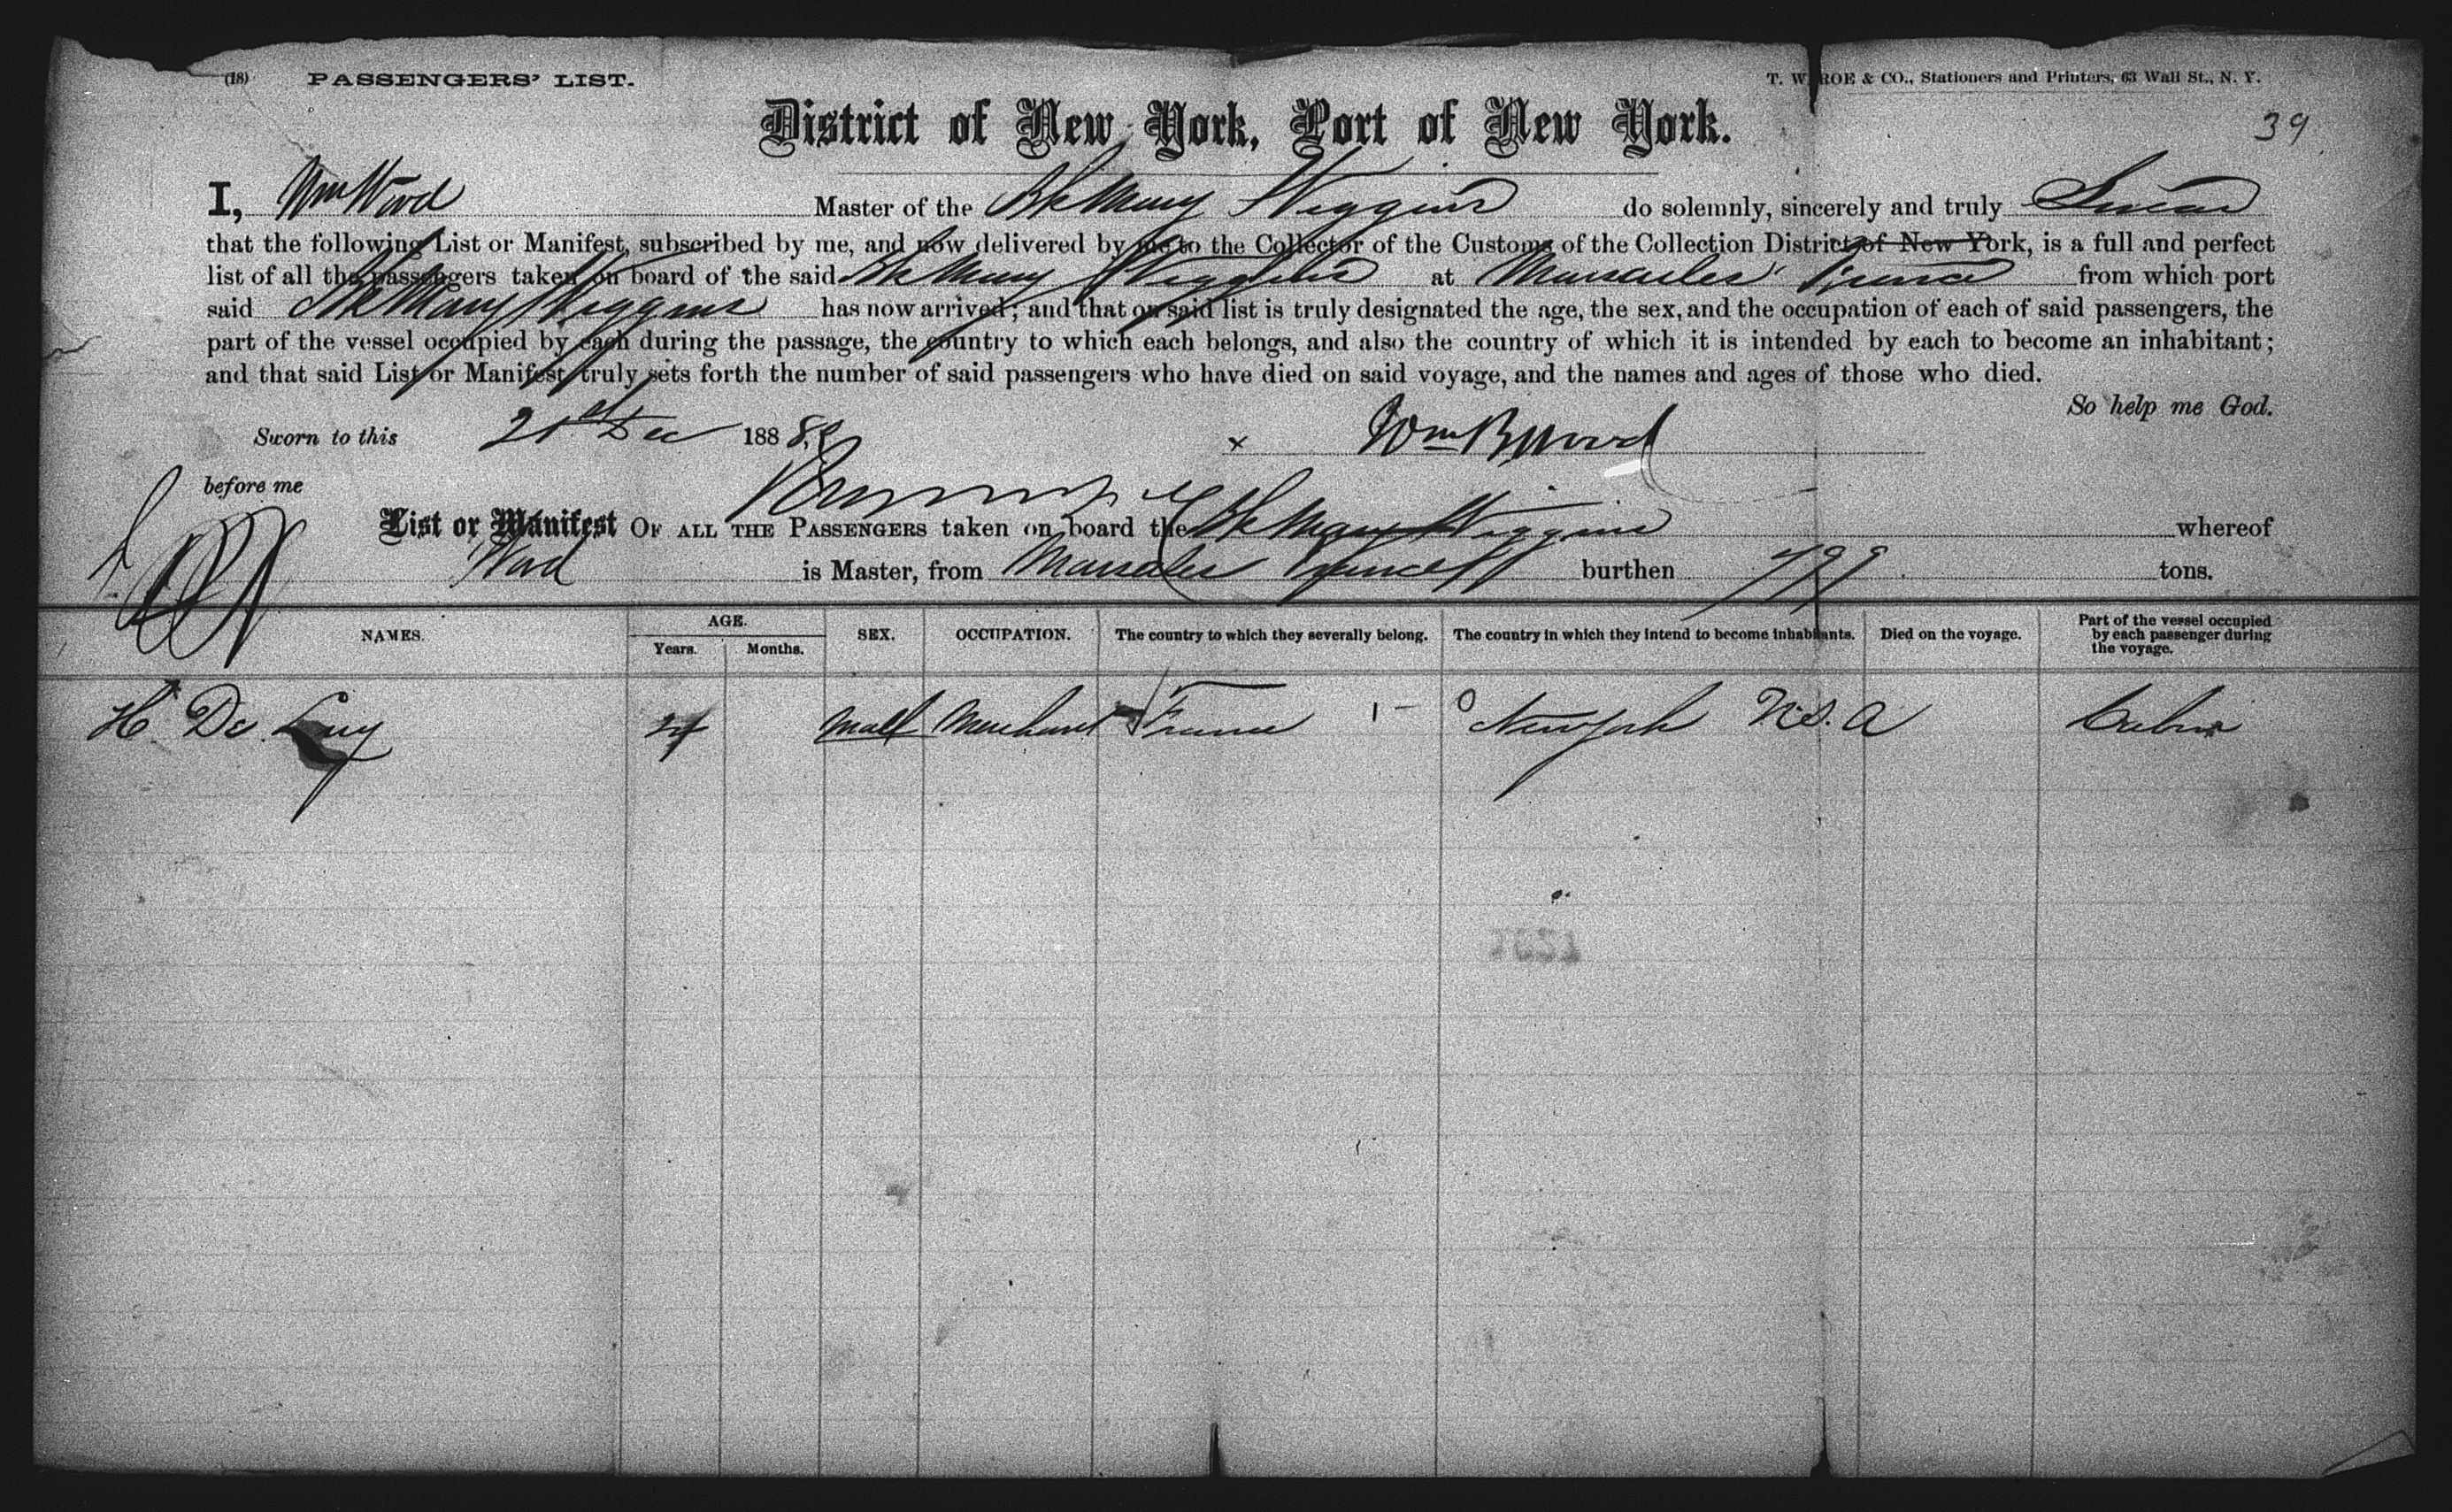 (18) PASSENGERS' LIST. T. W. ROE & CO., Stationers and Printers, 63 Wall St., N. Y.
District of New York, Port of New York.
39
I, Wm Wood Master of the Bk Mary Wiggins do solemnly, sincerely and truly Swear
that the following List or Manifest, subscribed by me, and now delivered by me to the Collector of the Customs of the Collection District of New York, is a full and perfect
list of all the passengers taken on board of the said Bk Mary Wiggins at Marseilles France from which port
said Bk Mary Wiggins has now arrived; and that on said list is truly designated the age, the sex, and the occupation of each of said passengers, the
part of the vessel occupied by each during the passage, the country to which each belongs, and also the country of which it is intended by each to become an inhabitant;
and that said List or Manifest truly sets forth the number of said passengers who have died on said voyage, and the names and ages of those who died.
So help me God.
Sworn to this 21st Dec 1888 x Wm B Wood
before me
List or Manifest OF ALL THE PASSENGERS taken on board the Bk Mary Wiggins whereof
Wood is Master, from Marseilles France burthen 799 tons.
NAMES. AGE. Years. Months. SEX. OCCUPATION. The country to which they severally belong. The country in which they intend to become inhabitants. Died on the voyage. Part of the vessel occupied by each passenger during the voyage.
H De Luy 24 Male Merchant France 1 - 0 New York U.S.A Cabin